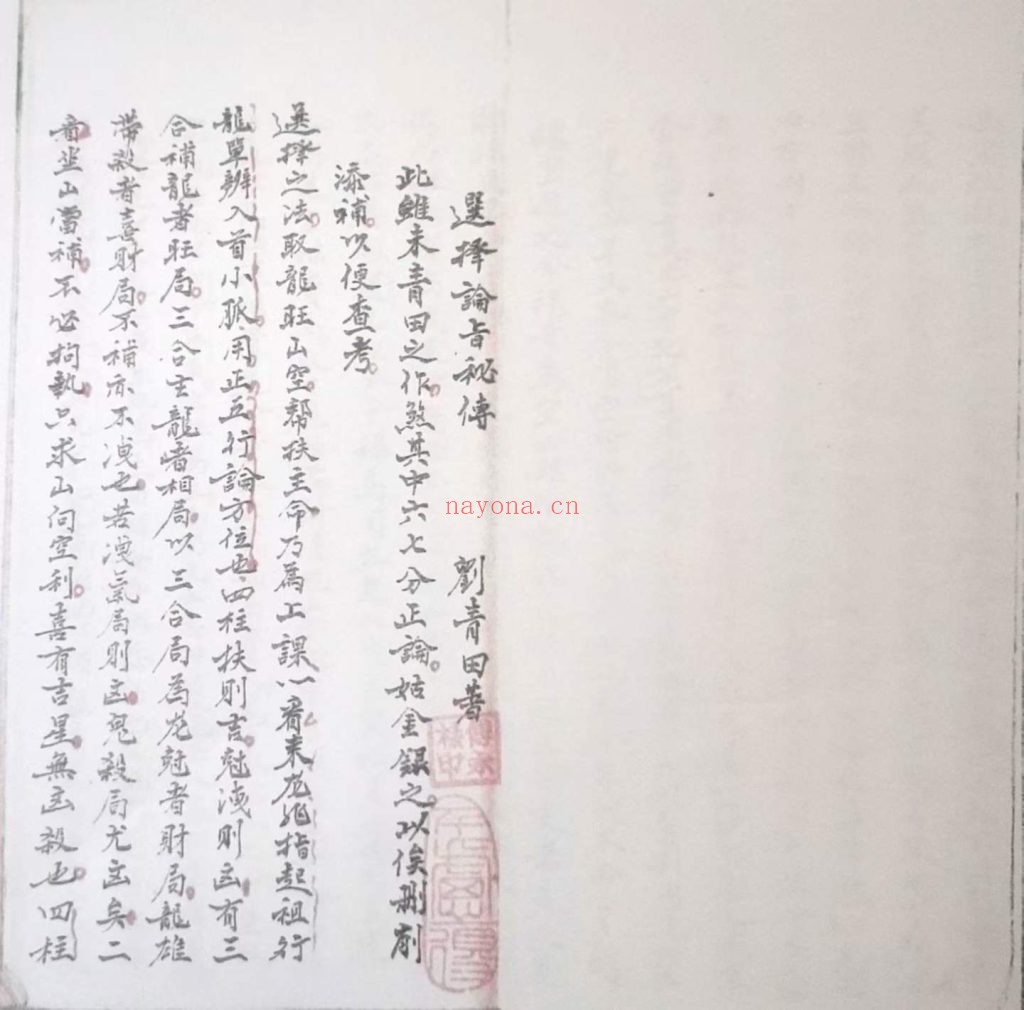 選擇論旨秘傳 劉青田著
此雖未青田之作煞其中六七分正論姑金銀之以俟刪削
添補以便查考
選擇之法取龍旺山空幫扶主命乃爲上課一看來龙非指起祖行
龍單辨入首小脈用正五行論方位也四柱扶則吉尅洩則凶有三
合補龍者旺局三合生龍者相局以三合局為龙尅者財局龍雄
帶殺者喜財局不補亦不洩也若洩氣局則凶鬼殺局尤凶矣二
看坐山當補不必拘執只求山向空利喜有吉星無凶殺也四柱
nayona.cn